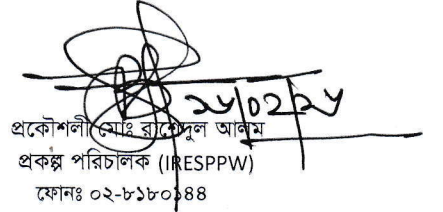 ২৮/০২/২৮
প্রকৌশলী মোঃ রাশেদুল আলম
প্রকল্প পরিচালক (IRESPPW)
ফোনঃ ০২-৮১৮০১৪৪